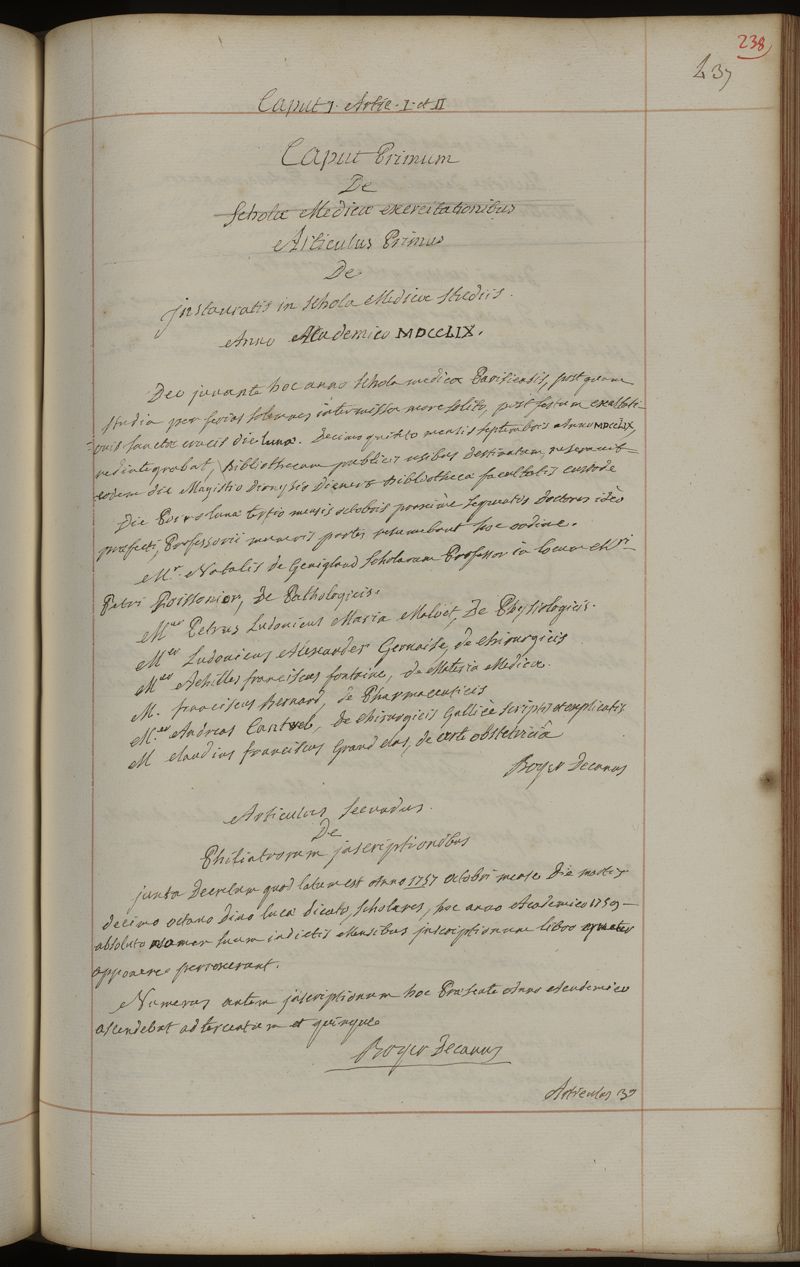 238
237
Caput 1. Artic. I. et II
Caput Primum
De
Scholæ Medicæ exercitationibus
Articulus Primus
De
instauratis in schola Medicæ studiis.
Anno Academico MDCCLIX.
Deo juvante hoc anno schola medicæ Parisiensis, postquam
studia per ferias solemnes intermissa more solito, post festum exaltati-
onis sanctæ crucis die lunæ. Decimo quinto mensis septembris Anno MDCCLIX,
redintegrabat, Bibliothecam publicis usibus destinatam, reseravit
eodem die Magistro Dionysio Bibliothecæ facultatis custode
Die lunæ tertio mensis octobris proxime sequentis doctores ideo
præfecti, Professorii muneris partes resumebant hoc ordine.
Mr. Natalis de Gevigland Scholarum Professor in locum Mri
Petri Poissonier, De Pathologicis.
Mer Petrus Ludovicus Maria Maloët, De Physiologicis.
Mer Ludovicus Alexander Gervaise, de chirurgicis
Mer Achilles franciscus fontaine, de Materia Medica.
M. franciscus Bernard, de Pharmaceuticis
Mer Andreas Cantwel, de chirurgicis Gallicè scriptis et explicatis
M claudius franciscus Grand clas, de arte obstetriciâ
Boyer Decanus
Articulus secundus.
De
Philiatrorum inscriptionibus
juxta Decretum quod latum est Anno 1757 octobri mense die martis
decimo octavo divo lucæ dicato, scholares, hoc anno Academico 1759
absoluto nomen suum indictis Mensibus inscriptionum libro quater
apponere perrexerunt.
Numerus autem inscriptionum hoc Præsente Anno Academico
ascendebat ad tercentum et quinque
Boyer Decanus
Articulus 3us